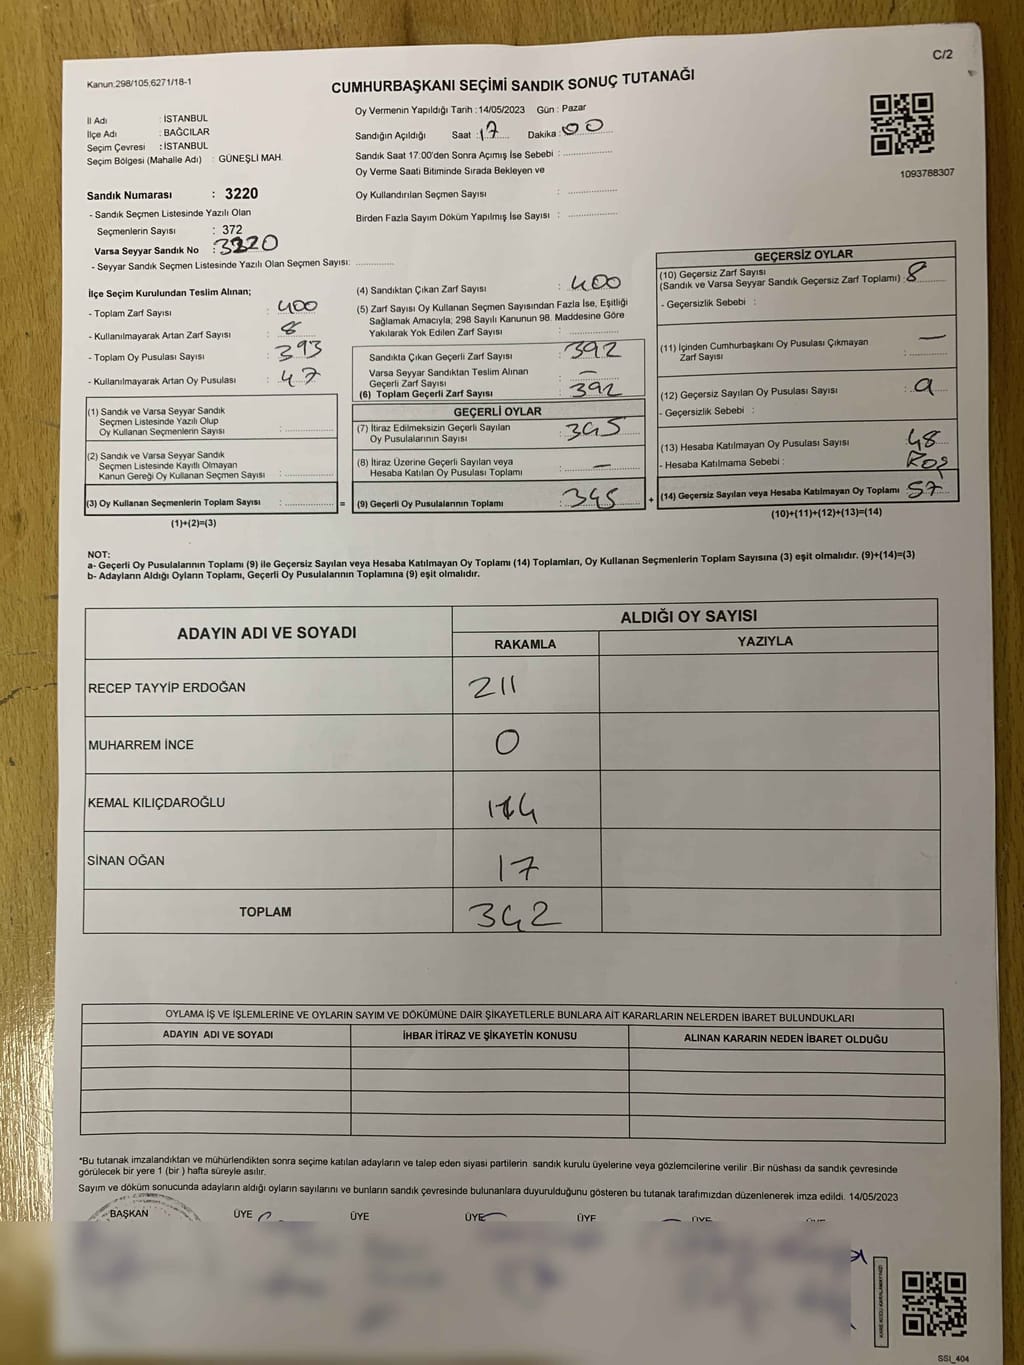 C/2
Kanun.298/105,6271/18-1
CUMHURBAŞKANI SEÇİMİ SANDIK SONUÇ TUTANAĞI
İl Adı : İSTANBUL
İlçe Adı : BAĞCILAR
Seçim Çevresi : İSTANBUL
Seçim Bölgesi (Mahalle Adı) : GÜNEŞLİ MAH.
Sandık Numarası : 3220
- Sandık Seçmen Listesinde Yazılı Olan
Seçmenlerin Sayısı : 372
Varsa Seyyar Sandık No : 3220
- Seyyar Sandık Seçmen Listesinde Yazılı Olan Seçmen Sayısı:
Oy Vermenin Yapıldığı Tarih : 14/05/2023 Gün : Pazar
Sandığın Açıldığı Saat : 17 Dakika : 00
Sandık Saat 17:00'den Sonra Açımış İse Sebebi :
Oy Verme Saati Bitiminde Sırada Bekleyen ve
Oy Kullandırılan Seçmen Sayısı :
Birden Fazla Sayım Döküm Yapılmış İse Sayısı :
1093788307
İlçe Seçim Kurulundan Teslim Alınan;
- Toplam Zarf Sayısı : 400
- Kullanılmayarak Artan Zarf Sayısı : 8
- Toplam Oy Pusulası Sayısı : 393
- Kullanılmayarak Artan Oy Pusulası : 47
(1) Sandık ve Varsa Seyyar Sandık
Seçmen Listesinde Yazılı Olup
Oy Kullanan Seçmenlerin Sayısı :
(2) Sandık ve Varsa Seyyar Sandık
Seçmen Listesinde Kayıtlı Olmayan
Kanun Gereği Oy Kullanan Seçmen Sayısı :
(3) Oy Kullanan Seçmenlerin Toplam Sayısı : =
(1)+(2)=(3)
(4) Sandıktan Çıkan Zarf Sayısı : 400
(5) Zarf Sayısı Oy Kullanan Seçmen Sayısından Fazla İse, Eşitliği
Sağlamak Amacıyla; 298 Sayılı Kanunun 98. Maddesine Göre
Yakılarak Yok Edilen Zarf Sayısı :
Sandıkta Çıkan Geçerli Zarf Sayısı : 392
Varsa Seyyar Sandıktan Teslim Alınan
Geçerli Zarf Sayısı : —
(6) Toplam Geçerli Zarf Sayısı : 392
GEÇERLİ OYLAR
(7) İtiraz Edilmeksizin Geçerli Sayılan
Oy Pusulalarının Sayısı : 345
(8) İtiraz Üzerine Geçerli Sayılan veya
Hesaba Katılan Oy Pusulası Toplamı : —
(9) Geçerli Oy Pusulalarının Toplamı : 345 +
GEÇERSİZ OYLAR
(10) Geçersiz Zarf Sayısı
(Sandık ve Varsa Seyyar Sandık Geçersiz Zarf Toplamı) : 8
- Geçersizlik Sebebi :
(11) İçinden Cumhurbaşkanı Oy Pusulası Çıkmayan
Zarf Sayısı : —
(12) Geçersiz Sayılan Oy Pusulası Sayısı : 9
- Geçersizlik Sebebi :
(13) Hesaba Katılmayan Oy Pusulası Sayısı : 48
- Hesaba Katılmama Sebebi : Boş
(14) Geçersiz Sayılan veya Hesaba Katılmayan Oy Toplamı : 57
(10)+(11)+(12)+(13)=(14)
NOT:
a- Geçerli Oy Pusulalarının Toplamı (9) ile Geçersiz Sayılan veya Hesaba Katılmayan Oy Toplamı (14) Toplamları, Oy Kullanan Seçmenlerin Toplam Sayısına (3) eşit olmalıdır. (9)+(14)=(3)
b- Adayların Aldığı Oyların Toplamı, Geçerli Oy Pusulalarının Toplamına (9) eşit olmalıdır.
ADAYIN ADI VE SOYADI
ALDIĞI OY SAYISI
RAKAMLA YAZIYLA
RECEP TAYYİP ERDOĞAN 211
MUHARREM İNCE 0
KEMAL KILIÇDAROĞLU
SİNAN OĞAN 17
TOPLAM 342
OYLAMA İŞ VE İŞLEMLERİNE VE OYLARIN SAYIM VE DÖKÜMÜNE DAİR ŞİKAYETLERLE BUNLARA AİT KARARLARIN NELERDEN İBARET BULUNDUKLARI
ADAYIN ADI VE SOYADI İHBAR İTİRAZ VE ŞİKAYETİN KONUSU ALINAN KARARIN NEDEN İBARET OLDUĞU
*Bu tutanak imzalandıktan ve mühürlendikten sonra seçime katılan adayların ve talep eden siyasi partilerin sandık kurulu üyelerine veya gözlemcilerine verilir .Bir nüshası da sandık çevresinde
görülecek bir yere 1 (bir ) hafta süreyle asılır.
Sayım ve döküm sonucunda adayların aldığı oyların sayılarını ve bunların sandık çevresinde bulunanlara duyurulduğunu gösteren bu tutanak tarafımızdan düzenlenerek imza edildi. 14/05/2023
BAŞKAN ÜYE ÜYE ÜYE ÜYE ÜYE ÜYE
SSI_404